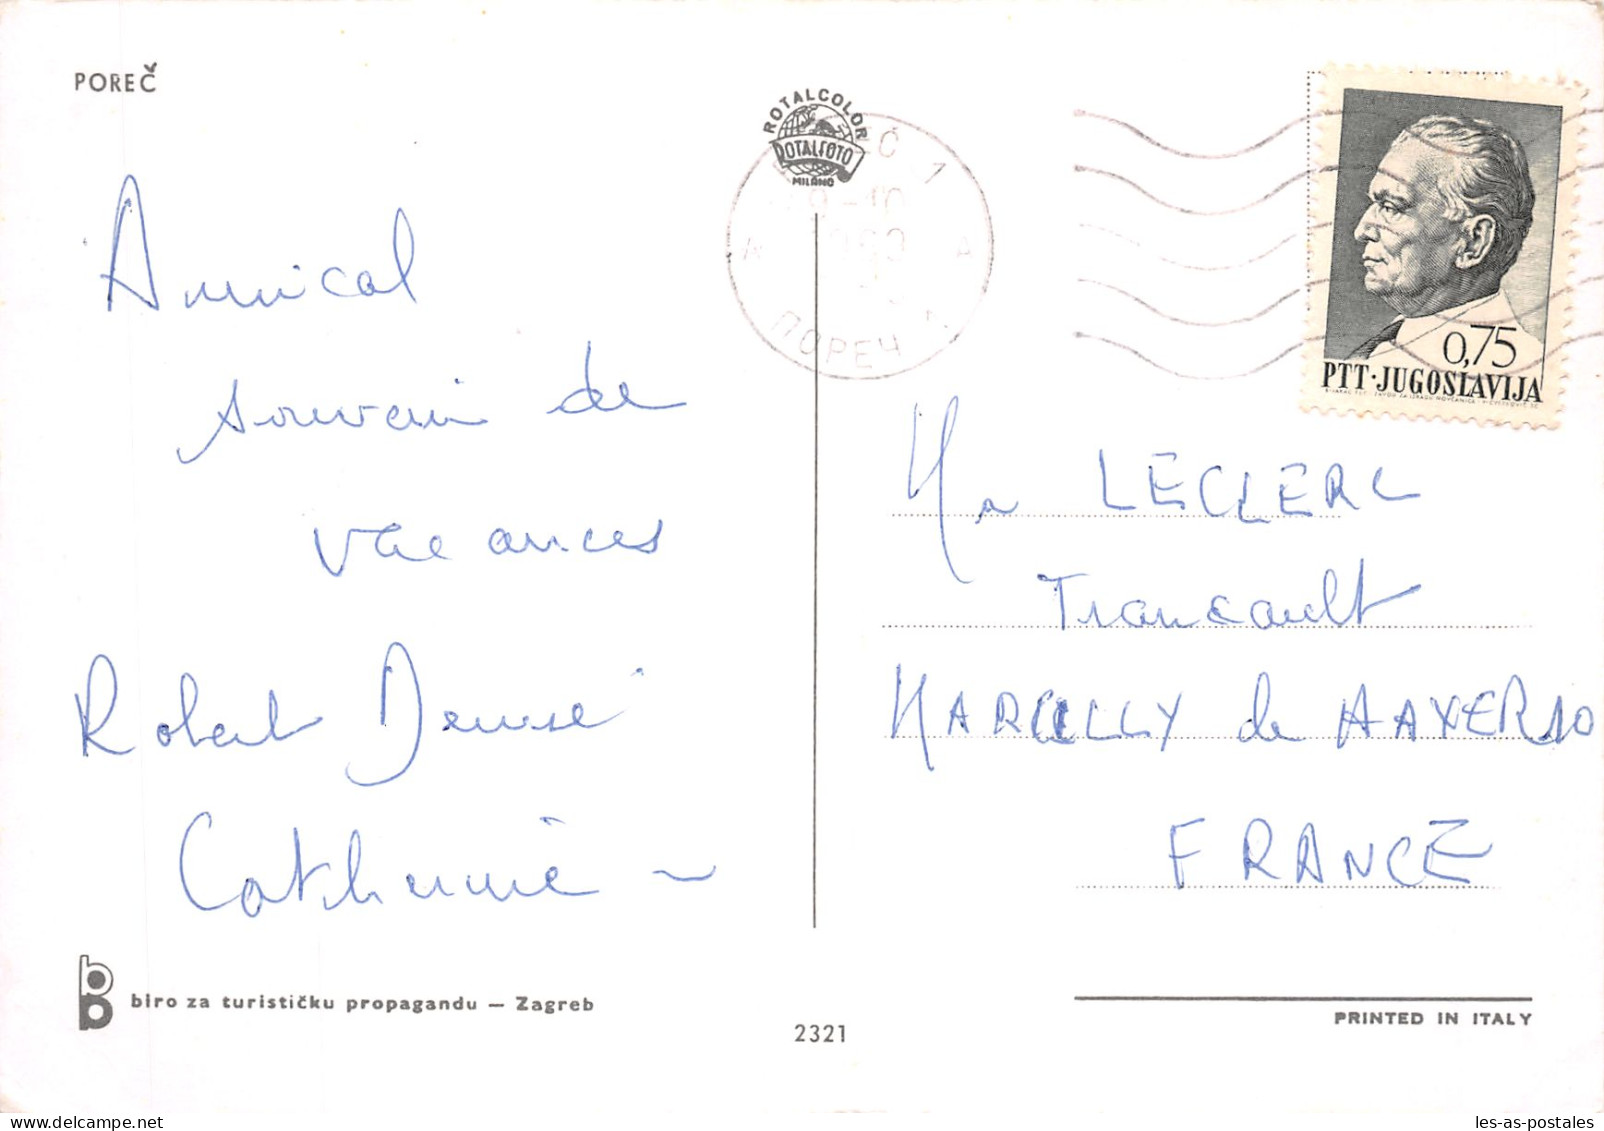 POREČ
ROTALCOLOR
ROTALFOTO
MILANO
ПОРЕЧ
0,75
PTT·JUGOSLAVIJA
Amical
souvenir de
vacances
Robert Denise
Catherine
Mr LECLERC
Trancault
MARCILLY de
FRANCE
biro za turističku propagandu – Zagreb
2321
PRINTED IN ITALY
les-as-postales